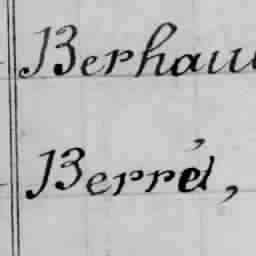 Berhau
Berré,